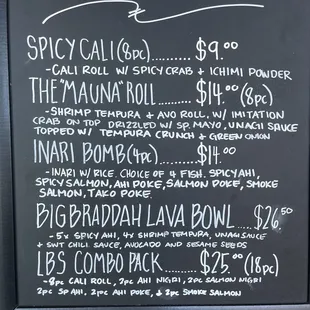 SPICY CALI (8pc).......... $9.00
- CALI ROLL W/ SPICY CRAB + ICHIMI POWDER
THE "MAUNA" ROLL....... $14.00 (8pc)
- SHRIMP TEMPURA + AVO ROLL, W/ IMITATION
CRAB ON TOP DRIZZLED W/ SP. MAYO, UNAGI SAUCE
TOPPED W/ TEMPURA CRUNCH + GREEN ONION
INARI BOMB (4pc)......... $14.00
- INARI W/ RICE. CHOICE OF 4 FISH. SPICY AHI,
SPICY SALMON, AHI POKE, SALMON POKE, SMOKE
SALMON, TAKO POKE.
BIG BRADDAH LAVA BOWL..... $26.50
- 5x SPICY AHI, 4x SHRIMP TEMPURA, UNAGI SAUCE
+ SWT CHILI SAUCE, AVOCADO AND SESAME SEEDS
LBS COMBO PACK.......... $25.00 (18pc)
- 8pc CALI ROLL, 2pc AHI NIGIRI, 2pc SALMON NIGIRI
2pc SP AHI, 2pc AHI POKE, + 2pc SMOKE SALMON